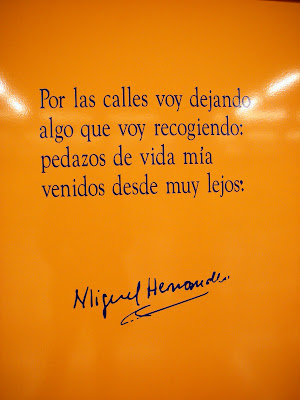 Por las calles voy dejando
algo que voy recogiendo:
pedazos de vida mía
venidos desde muy lejos.
Miguel Hernández